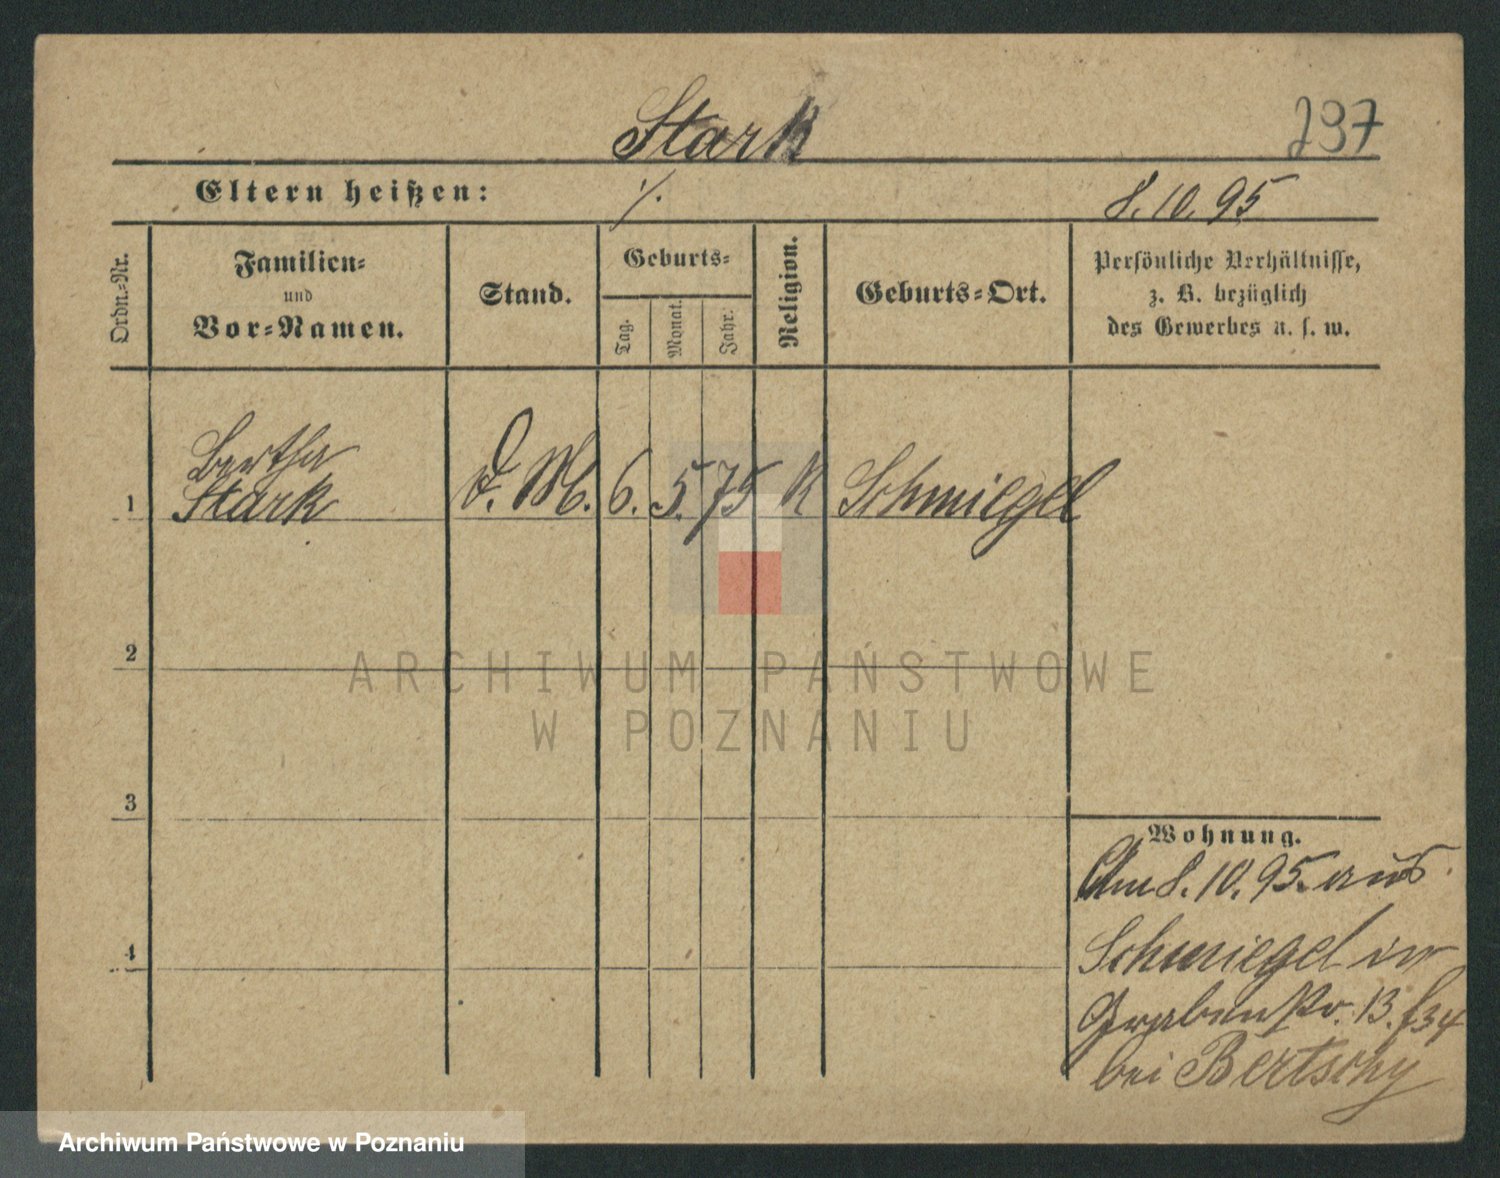 Stark
237
Eltern heißen: ·/.
8.10.95
Ordn.-Nr.
Familien-
und
Vor-Namen.
Stand.
Geburts-
Tag.
Monat.
Jahr.
Religion.
Geburts-Ort.
Persönliche Verhältnisse,
z. B. bezüglich
des Gewerbes u. s. w.
Bertha
1 Stark D. M. 6. 5. 75 K Schmiegel
2
3
4
Wohnung.
Am 8.10.95. aus
Schmiegel in
Grabenstr. 13.
bei Bertschy
ARCHIWUM PAŃSTWOWE
W POZNANIU
Archiwum Państwowe w Poznaniu